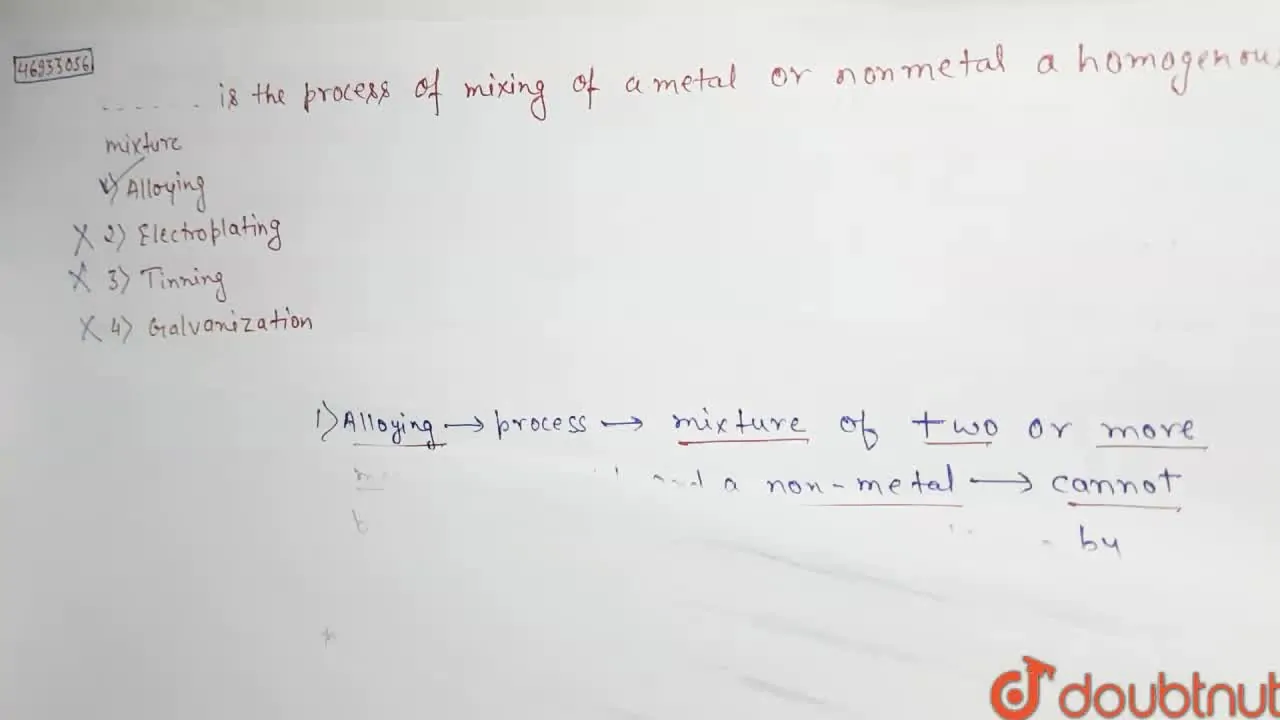 46933056
...... is the process of mixing of a metal or nonmetal a homogenous
mixture
1) Alloying
X 2) Electroplating
X 3) Tinning
X 4) Galvanization
1) Alloying → process → mixture of two or more
a non-metal → cannot
by
doubtnut